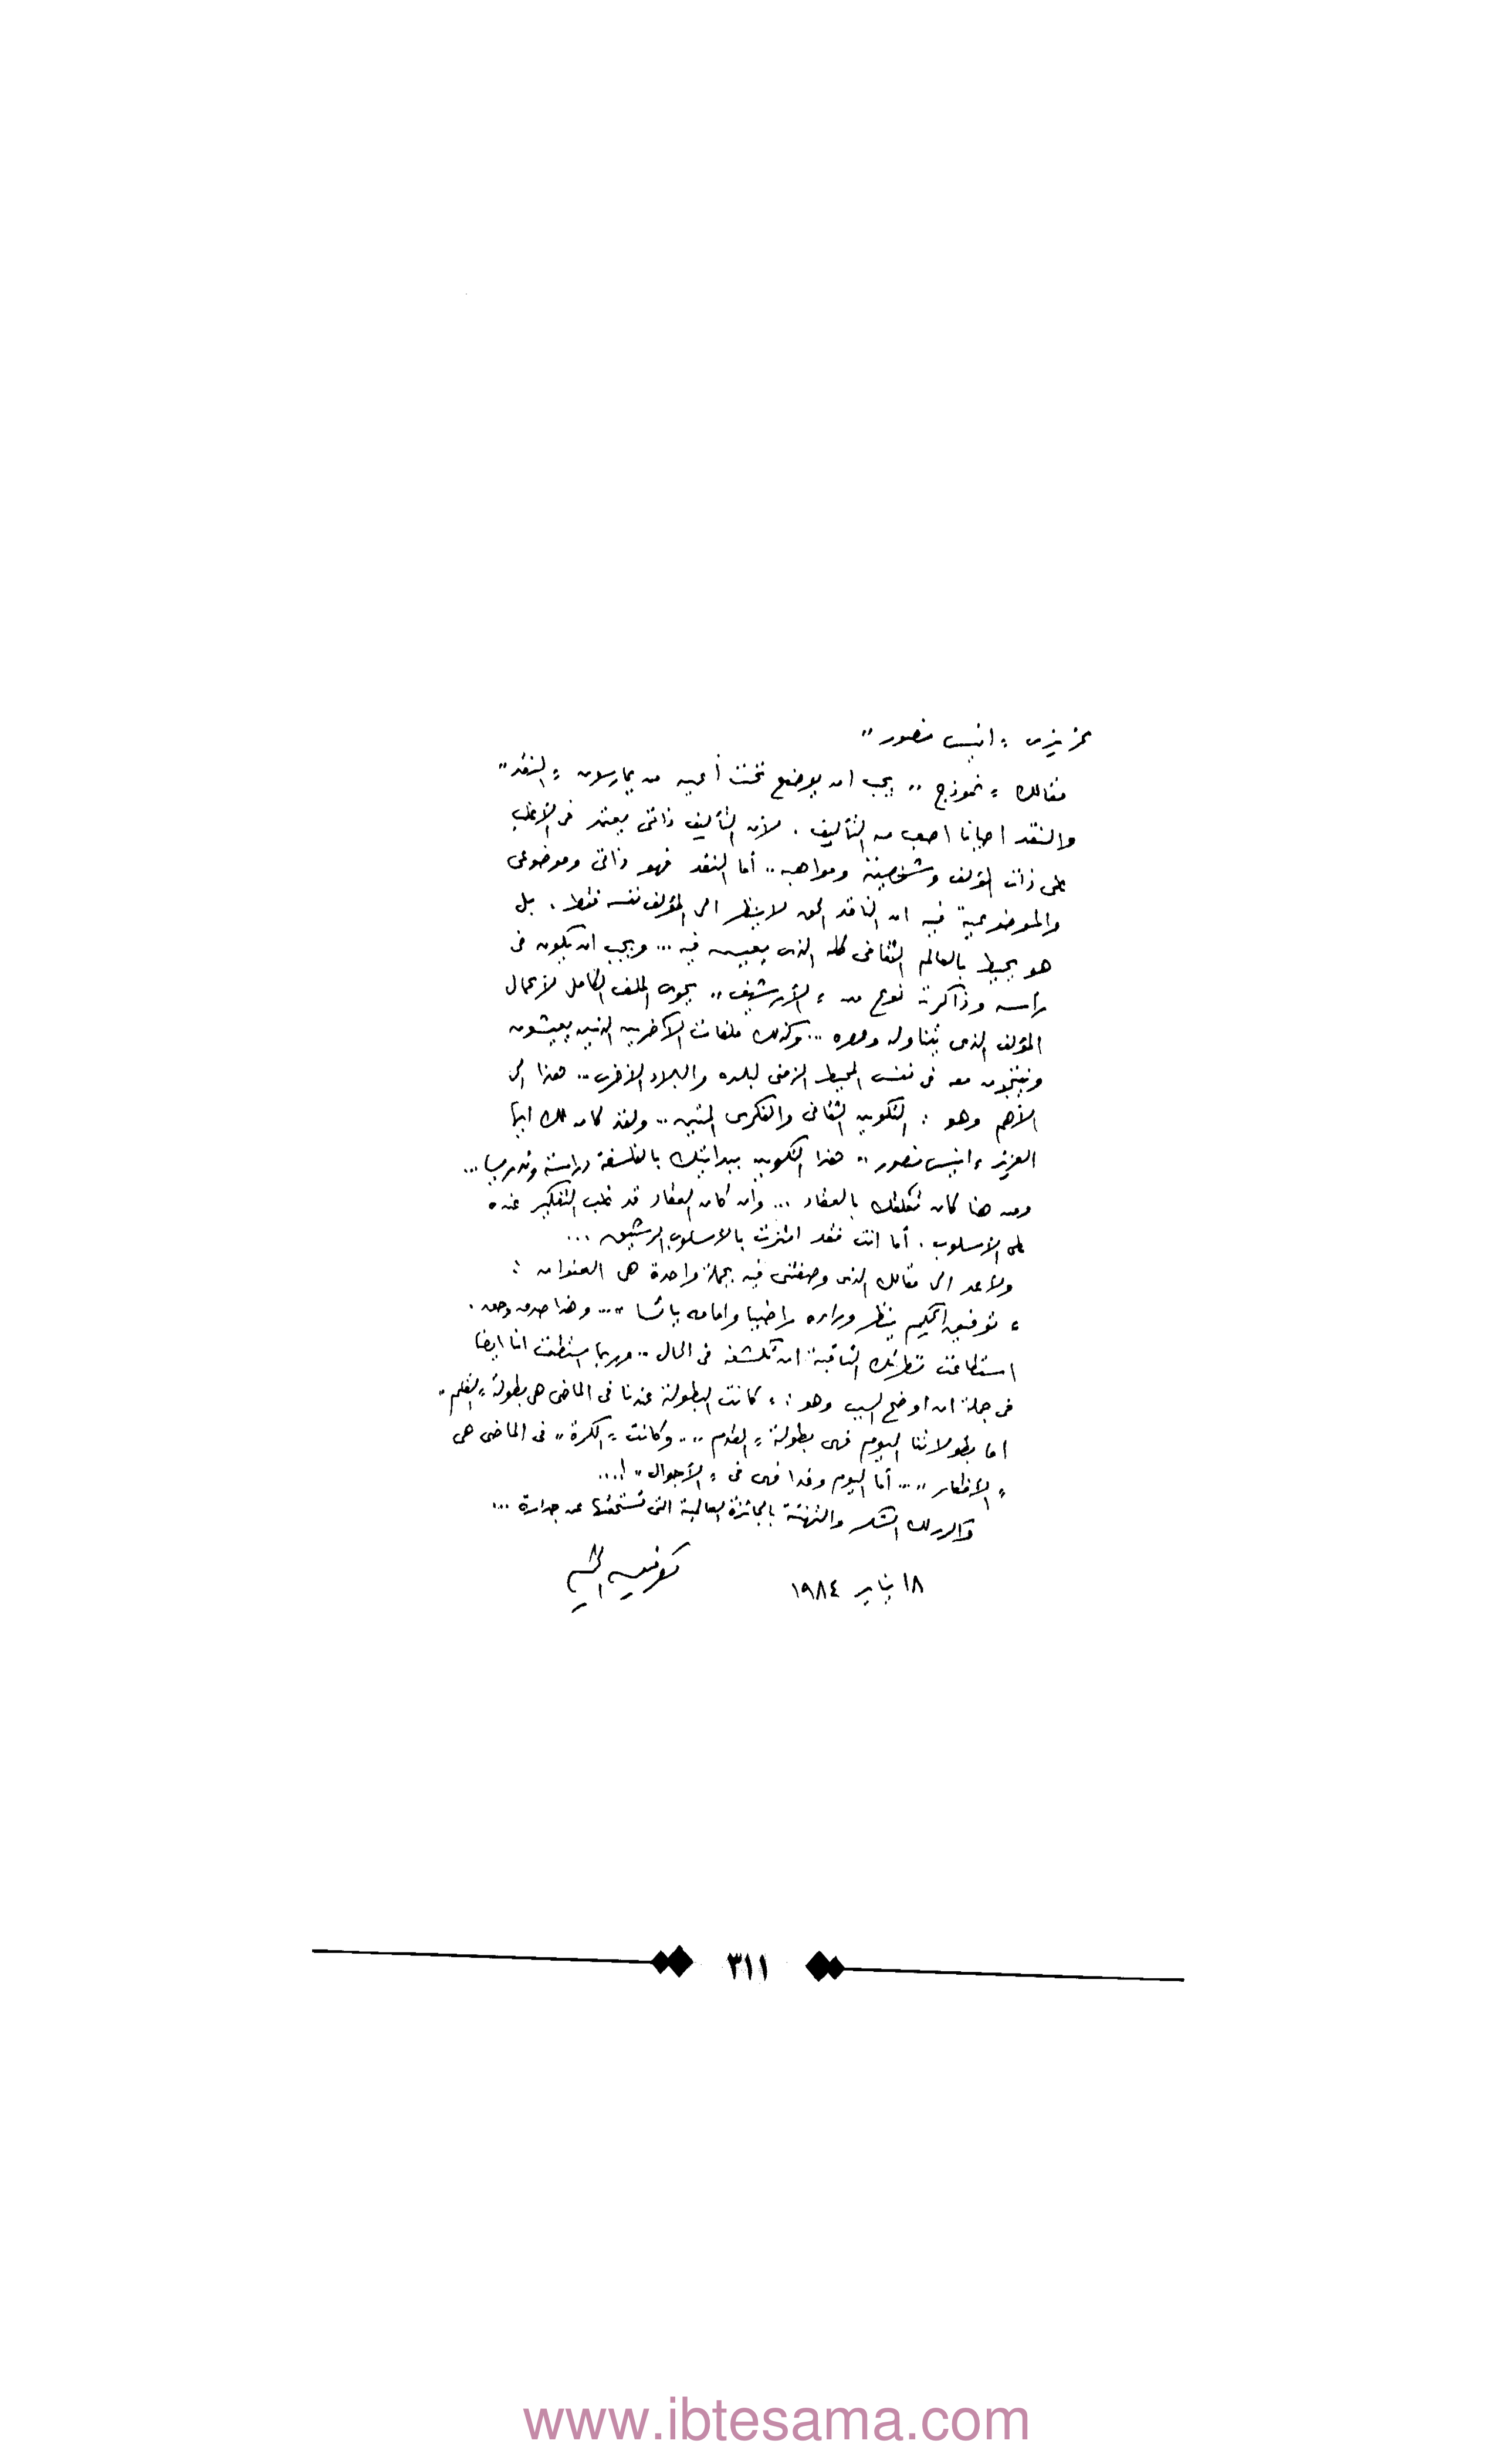 عزيزى « انيس منصور »
مقالك « نموذج » يجب ان يوضع تحت أعين من يمارسون « النقد »
والنقد احيانا اصعب من التأليف . لأن التأليف ذاتى يعتمد فى الأغلب
على ذات المؤلف وشخصيته ومواهبه .. أما النقد فهو ذاتى وموضوعى
والموضوعية فيه ان الناقد الحق لا ينظر الى المؤلف نفسه فقط . بل
هو يحيط بالعالم الثقافى كله الذى يعيش فيه ... ويجب ان يكون فى
رأسه وذاكرته نوع من « الأرشيف » يحوى الملف الكامل لأعمال
المؤلف الذى يتناوله وعصره ... وكذلك ملفات الآخرين الذين يعيشون
وينتجون معه فى نفس المحيط الزمنى لبلده والبلاد الأخرى .. هذا الى
الأهم وهو : التكوين الثقافى والفكرى المتين .. ولقد كان لك ايها
العزيز « انيس منصور » هذا التكوين ببدايتك بالفلسفة دراسة وتدريسا ...
ومن هنا كان تعلقك بالعقاد ... وان كان العقاد قد غلب التفكير عنده
على الاسلوب . أما انت فقد امتزت بالاسلوب الرشيق ...
ولأعد الى مقالك الذى وصفتنى فيه بجملة واحدة هى العنوان :
« توفيق الحكيم ينظر وراءه راضيا وامامه يائسا » ... وهذا صدق وحق .
استطاعت نظرتك الثاقبة ان تكشفه فى الحال .. وربما استطعت انا ايضا
فى جملة ان اوضح السبب وهو : « كانت البطولة عندنا فى الماضى هى بطولة « القلم »
اما بطولاتنا اليوم فهى بطولة « القدم » .. وكانت « الكرة » فى الماضى هى
« الأفكار » ... أما اليوم وغدا فهى فى « الأجوال » ! ....
وأكرر لك الشكر والتهنئة بالجائزة العالمية التى تستحقها عن جدارة ...
توفيق الحكيم
١٨ يناير ١٩٨٤
٣١١
www.ibtesama.com